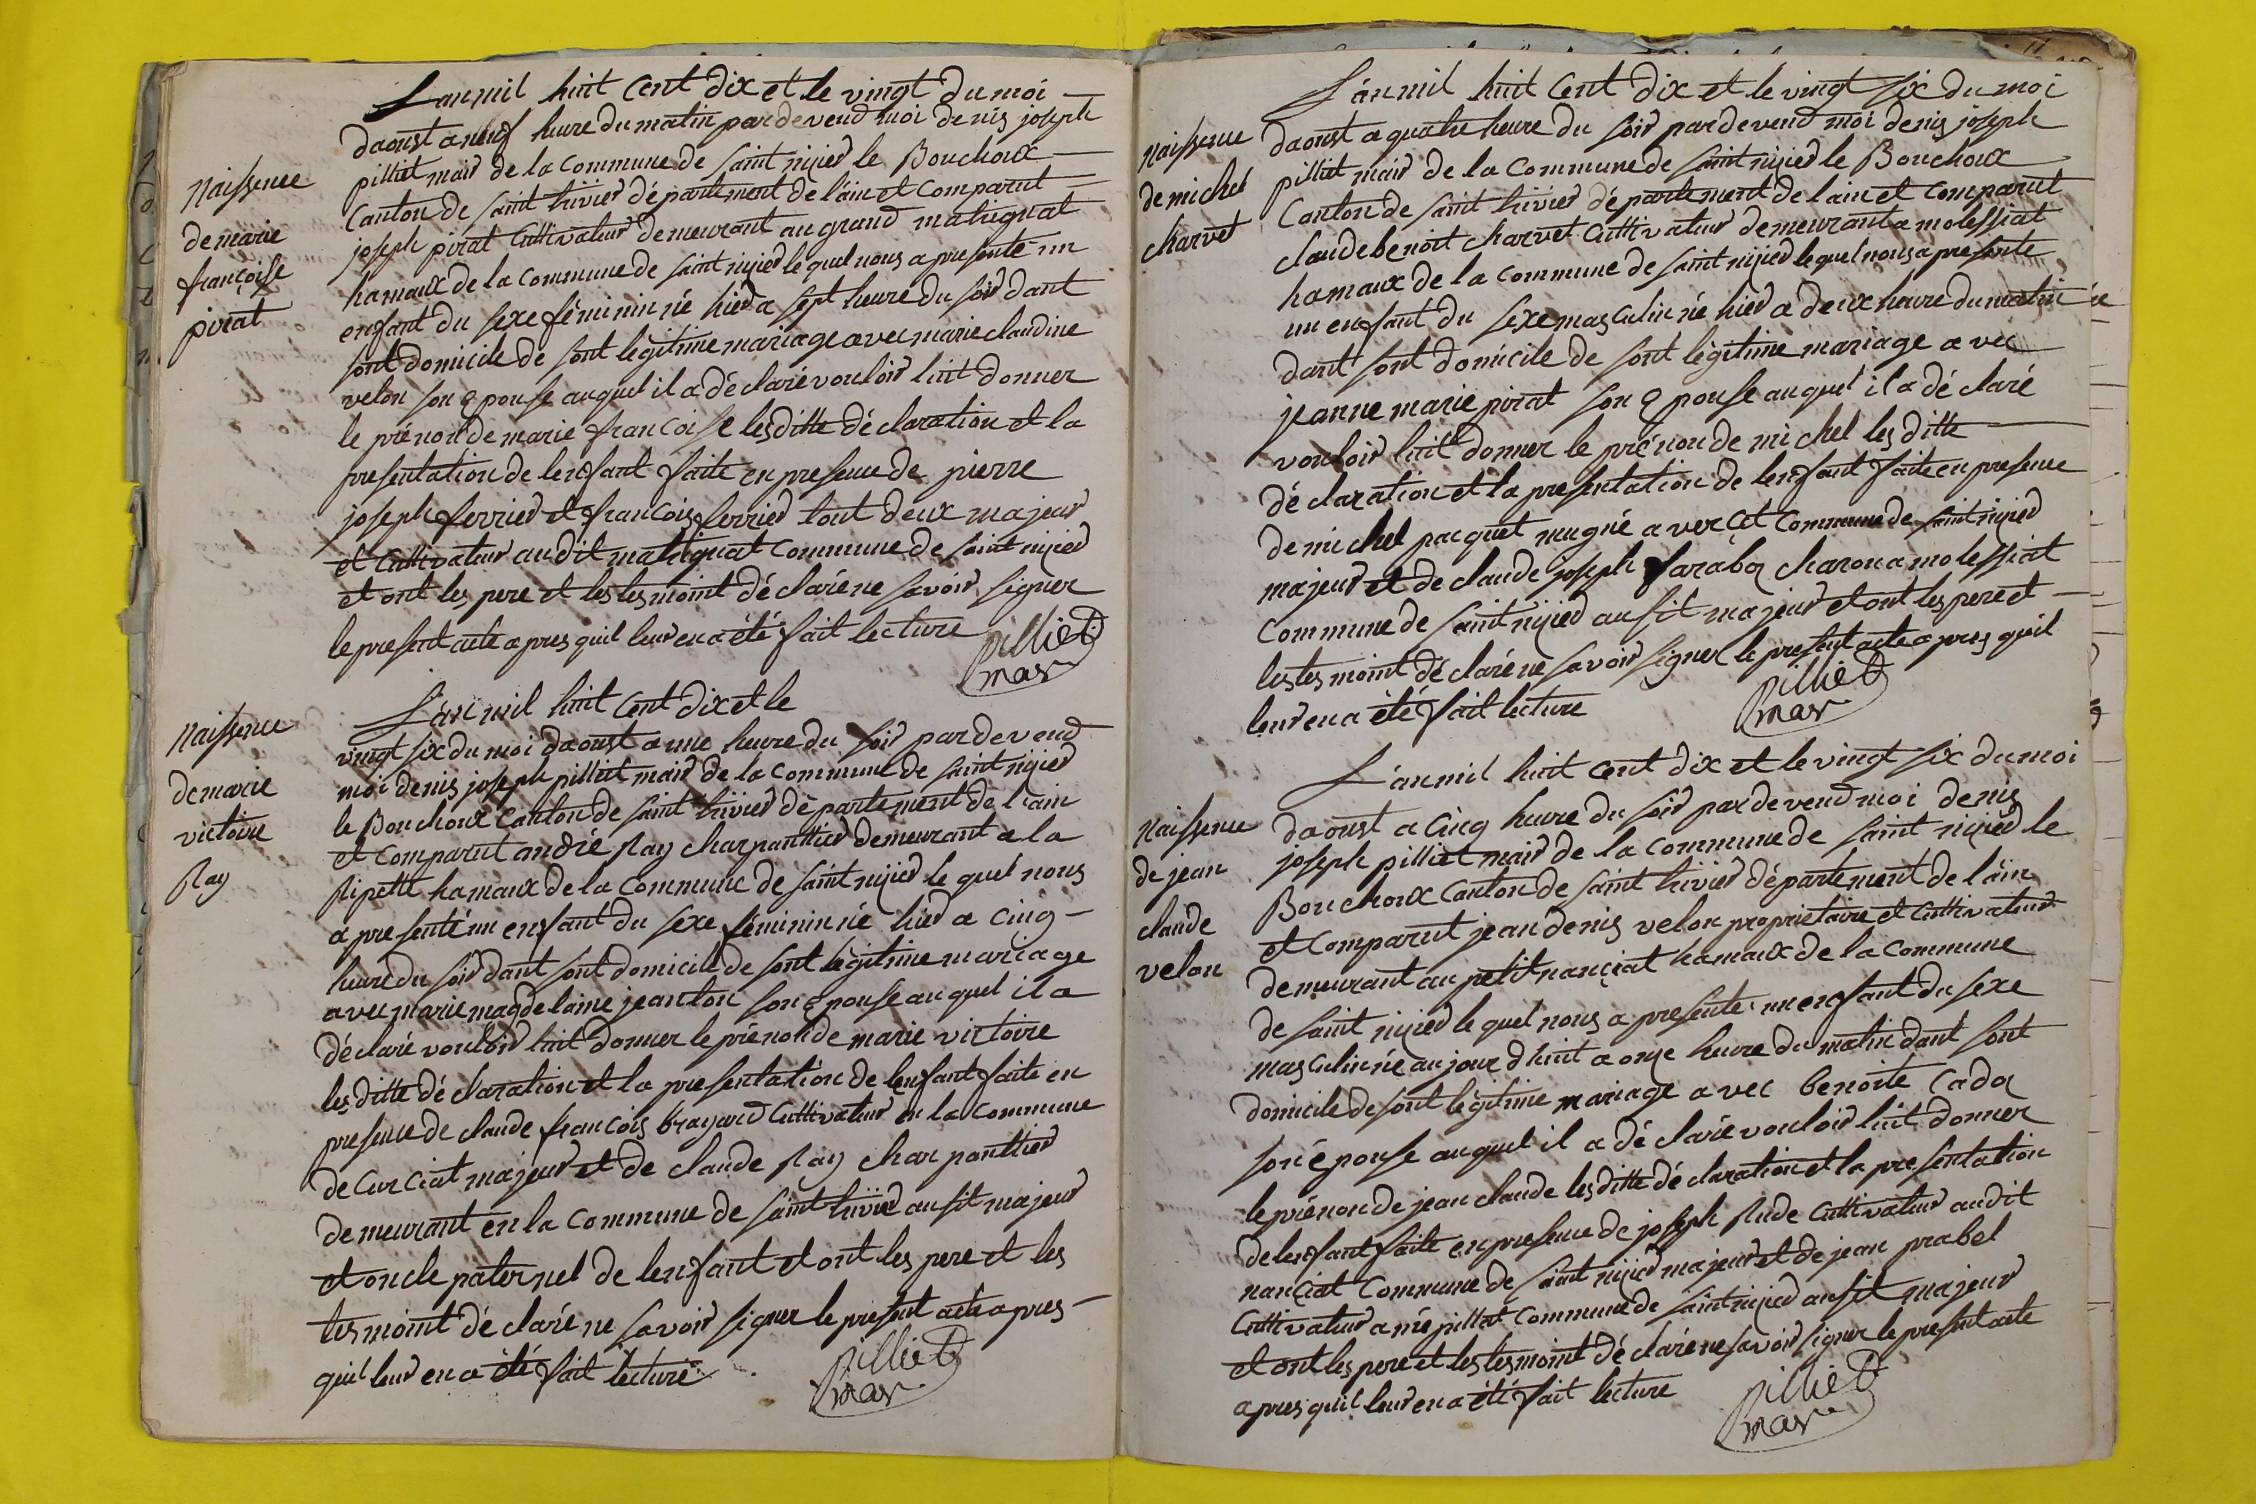 Lan mil huit Cent dix et le vingt du moi
daoust a neuf heure du matin par devend moi denis joseph
pilliet mair de la Commune de saint nizied le Bouchoux
Canton de saint trivier département de láin et Comparut
joseph pirat Cultivateur demeurant au grand malignat
hamaux de la Commune de saint nizied le quel nous a presenté un
enfant du sexe féminin né hied a sept heure du soir dant
sont domicile de sont legitime mariage avec marie claudine
velon son epouse auquel il a déclaré vouloir luit donner
le prénon de marie françoise les ditte déclaration et la
presentation de lenfant faite en presence de pierre
joseph ferried et françois ferried tout deux majeur
et Cultivateur audit malignat Commune de saint nizied
et ont les pere et les tesmoint déclaré ne savoir signer
le present acte apres quil leur en a été fait lecture
pilliet
mair
Naissence
de marie
françoise
pirat
Lán mil huit Cent dix et le
vingt six du moi daoust a une heure du soir par devend
moi denis joseph pilliet mair de la Commune de saint nizied
le Bouchoux Canton de saint trivier département de láin
et Comparut andré Ray charpanttier demeurant a la
Ripette hamaux de la Commune de saint nizied le quel nous
a presenté un enfant du sexe féminin né hied a cinq
heure du soir dant sont domicile de sont légitime mariage
avec marie magdelaine jeanton son epouse auquel il a
déclaré vouloir luit donner le prénon de marie victoire
les ditte déclaration et la presentation de lenfant faite en
presence de claude françois brayard Cultivateur en la Commune
de Curciat majeur et de claude Ray charpanttier
demeurant en la Commune de saint trivier ausit majeur
et oncle paternel de lenfant et ont les pere et les
tesmoint déclaré ne savoir signer le present acte apres
quil leur en a été fait lecture
pilliet
mair
Naissence
de marie
victoire
Ray
Lán mil huit Cent dix et le vingt six du moi
daoust a quatre heure du soir par devend moi denis joseph
pilliet mair de la Commune de saint nizied le Bouchoux
Canton de saint trivier département de lain et Comparut
claude benoit charvet Cultivateur demeurant a molessiat
hamaux de la Commune de saint nizied le quel nous a presente
un enfant du sexe masculin né hied a deux heure du matin
dant sont domicile de sont légitime mariage avec
jeanne marie pirat son epouse auquel il a déclaré
vouloir luit donner le prénon de michel les ditte
déclaration et la presentation de lenfant faite en presence
de michel pacquet mugné a ver Cit Commune de saint nizied
majeur et de claude joseph charon a molessiat
Commune de saint nizied ausit majeur et ont les pere et
les tesmoint déclaré ne savoir signer le present acte apres quil
leur en a été fait lecture
pilliet
mair
Naissence
de michel
charvet
Lán mil huit Cent dix et le vingt six du moi
daoust a Cinq heure du soir par devend moi denis
joseph pilliet mair de la Commune de saint nizied le
Bouchoux Canton de saint trivier département de láin
et Comparut jean denis velon proprietaire et Cultivateur
demeurant au petit nanciat hamaux de la Commune
de saint nizied le quel nous a presenté un enfant du sexe
masculin né aujourdhuit a onze heure du matin dant sont
domicile de sont légitime mariage avec benoite Cadoz
son épouse auquel il a déclaré vouloir luit donner
le prénon de jean claude les ditte déclaration et la presentation
de lenfant faite en presence de joseph Rude Cultivateur audit
nanciat Commune de saint nizied majeur et de jean prabel
Cultivateur a mépillat Commune de saint nizied ausit majeur
et ont les pere et les tesmoint déclaré ne savoir signer le present acte
apres quil leur en a été fait lecture
pilliet
mair
Naissence
de jean
claude
velon